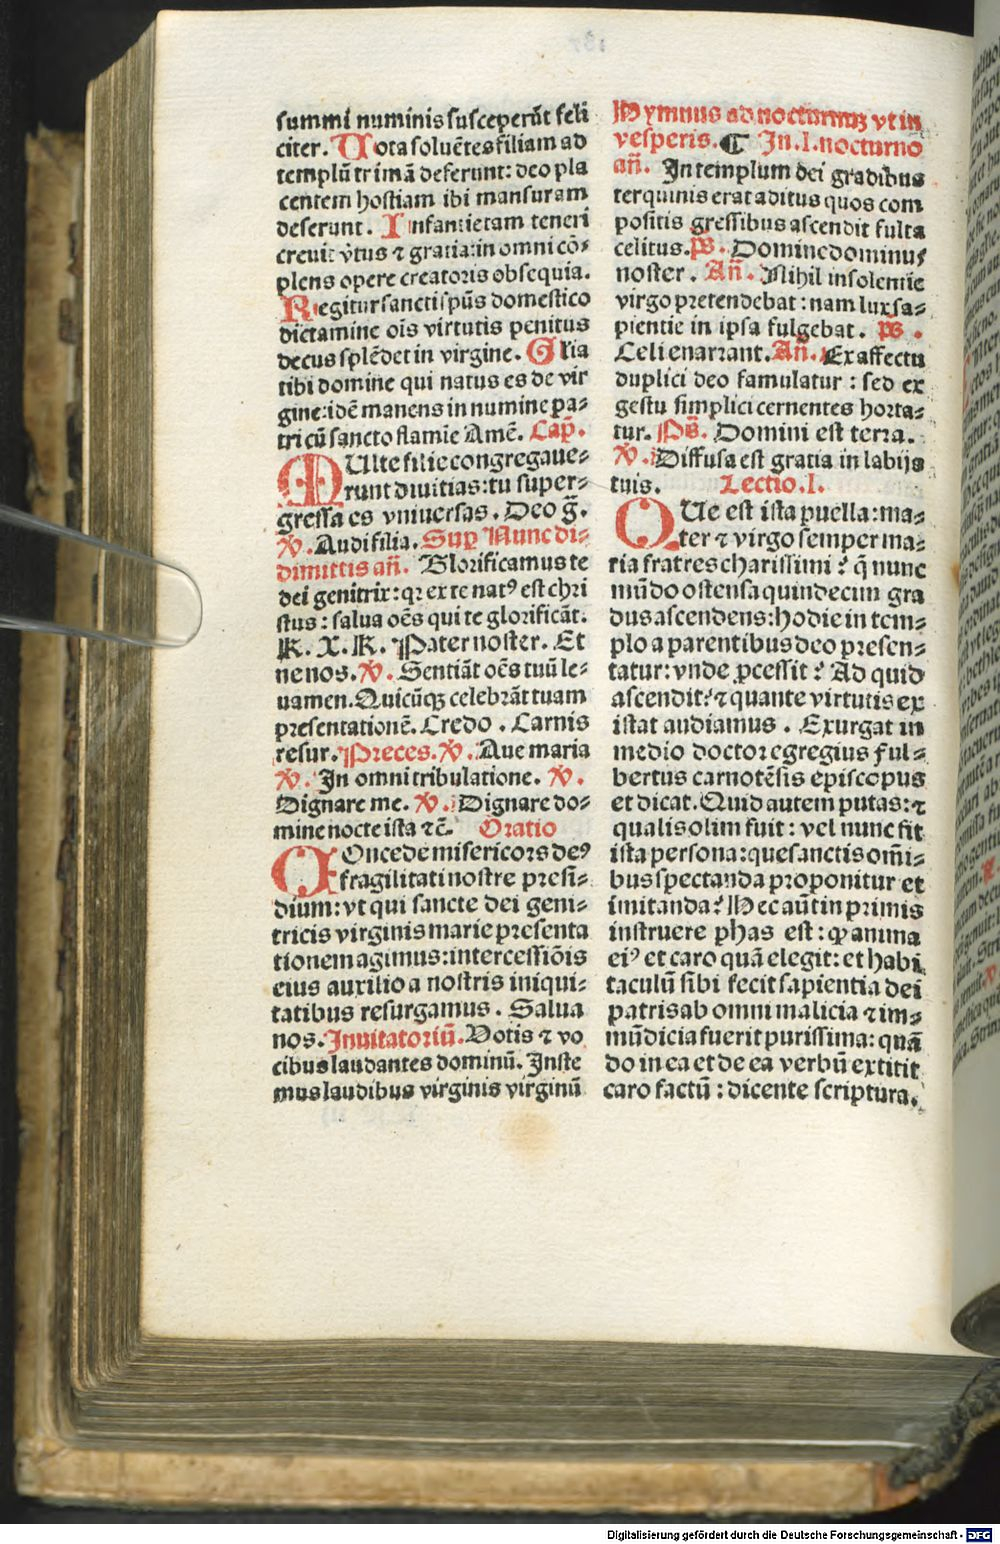 summi numinis susceperūt feli
citer. Uota soluētes filiam ad
templū trimā deferunt: deo pla
centem hostiam ibi mansuram
deserunt. Infantie tam teneri
creuit v̄tus ⁊ gratia: in omni cō-
plens opere creatoris obsequia.
Regitur sancti sp̄us domestico
dictamine oīs virtutis penitus
decus splēdet in virgine. Gl̄ia
tibi domine qui natus es de vir
gine: idē manens in numine pa-
tri cū sancto flamīe Amē. Cap̄.
MUlte filie congregaue-
runt diuitias: tu super-
gressa es vniuersas. Deo ḡ.
V̄. Audi filia. Sup̄ Nunc di-
dimittis an̄. Glorificamus te
dei genitrix: qꝛ ex te natꝰ est chri
stus: salua oēs qui te glorificāt.
K. X. K. Pater noster. Et
ne nos. V̄. Sentiāt oēs tuū le-
uamen. Quicūqꝫ celebrāt tuam
presentationē. Credo. Carnis
resur. Preces. V̄. Aue maria
V̄. In omni tribulatione. V̄.
Dignare me. V̄. Dignare do-
mine nocte ista ⁊c̄. Oratio
COncede misericors deꝰ
fragilitati nostre presi-
dium: vt qui sancte dei geni-
tricis virginis marie presenta
tionem agimus: intercessiōis
eius auxilio a nostris iniqui-
tatibus resurgamus. Salua
nos. Inuitatoriū. Votis ⁊ vo
cibus laudantes dominū. Inste
mus laudibus virginis virginū
Hymnus ad nocturnuꝫ vt in
vesperis. ¶ In .I. nocturno
an̄. In templum dei gradibus
ter quinis erat aditus quos com
positis gressibus ascendit fulta
celitus. Ps̄. Domine dominus
noster. An̄. Nihil insolentie
virgo pretendebat: nam lux sa-
pientie in ipsa fulgebat. Ps̄.
Celi enarrant. An̄. Ex affectu
duplici deo famulatur: sed ex
gestu simplici cernentes horta-
tur. Ps̄. Domini est terra.
V̄. Diffusa est gratia in labijs
tuis. Lectio .I.
QUe est ista puella: ma-
ter ⁊ virgo semper ma-
ria fratres charissimi? q̄ nunc
mūdo ostensa quindecim gra
dus ascendens: hodie in tem-
plo a parentibus deo presen-
tatur: vnde ꝓcessit? Ad quid
ascendit? ⁊ quante virtutis ex
istat audiamus. Exurgat in
medio doctor egregius ful-
bertus carnotēsis episcopus
et dicat. Quid autem putas: ⁊
qualis olim fuit: vel nunc fit
ista persona: que sanctis om̄i-
bus spectanda proponitur et
imitanda? Hec aūt in primis
instruere phas est: ꝙ anima
eiꝰ et caro quā elegit: et habi
taculū sibi fecit sapientia dei
patris ab omni malicia ⁊ im-
mūdicia fuerit purissima: quā
do in ea et de ea verbū extitit
caro factū: dicente scriptura.
Digitalisierung gefördert durch die Deutsche Forschungsgemeinschaft - DFG